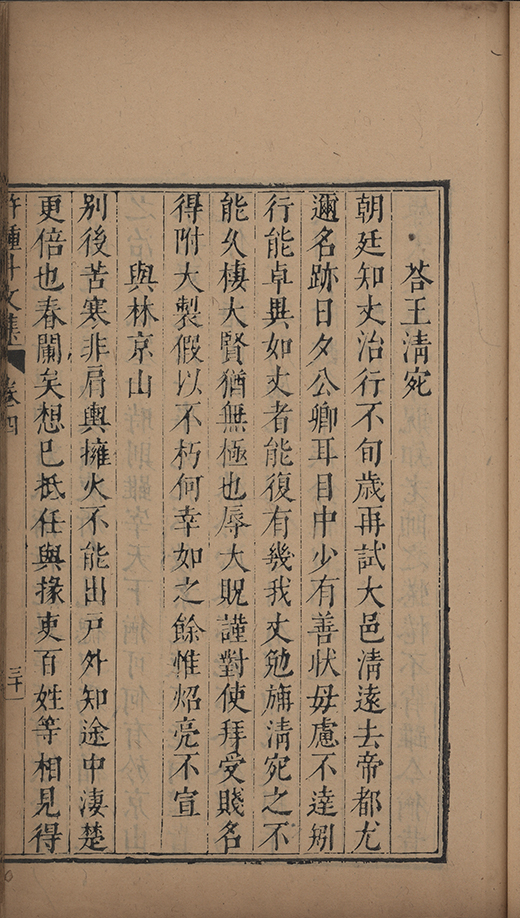 荅王清宛
朝廷知丈治行不旬歳再試大邑清遠去帝都尤
邇名跡日夕公卿耳目中少有善狀毋慮不達矧
行能卓異如丈者能復有幾我丈勉旃清宛之不
能久棲大賢猶無極也辱大貺謹對使拜受賤名
得附大製假以不朽何幸如之餘惟炤亮不宣
與林京山
別後苦寒非肩輿擁火不能出戶外知途中淒楚
更倍也春闌矣想已抵任與掾吏百姓等相見得
許鍾斗文集 卷四 三十一